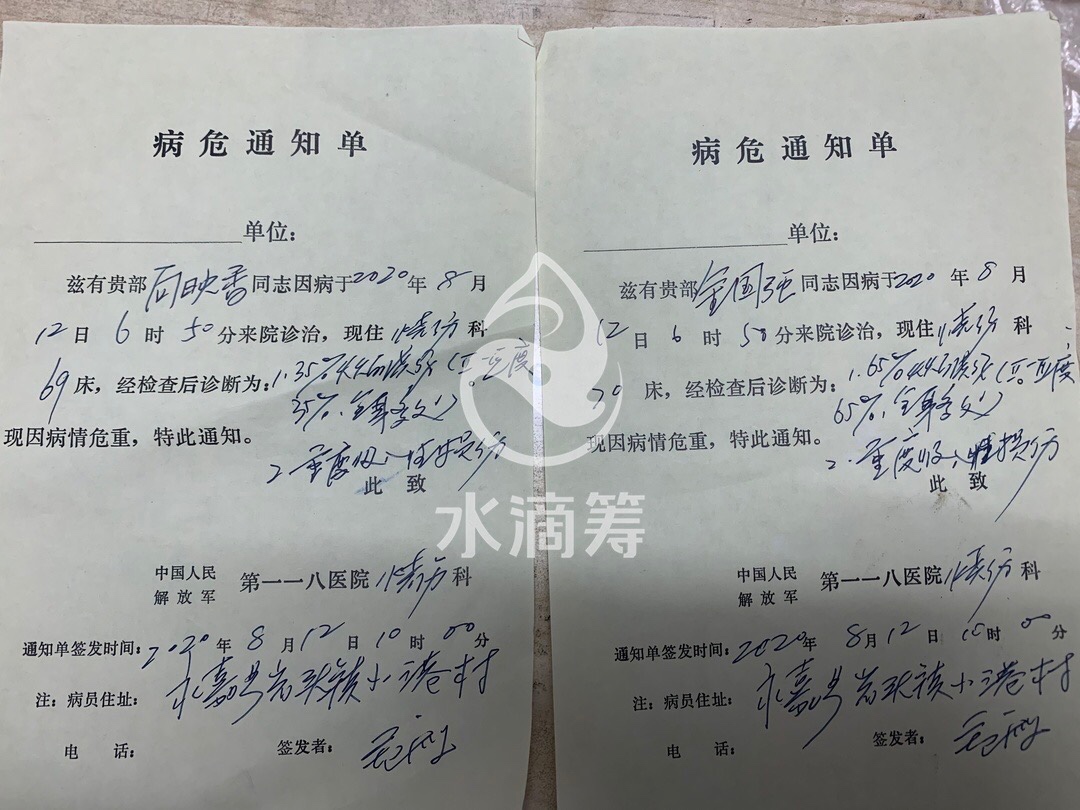 病危通知单
单位：
兹有贵部 同志因病于2020年8月
12日6时50分来院诊治，现住烧伤科
69床，经检查后诊断为：1.35%火焰烧伤（Ⅱ-Ⅲ度
35%，全身多处）
现因病情危重，特此通知。
2.重度吸入性损伤
此致
中国人民解放军 第一一八医院烧伤科
通知单签发时间：2020年8月12日10时00分
注：病员住址：永嘉县岩头镇小港村
电话： 签发者：
病危通知单
单位：
兹有贵部金国强同志因病于2020年8月
12日6时50分来院诊治，现住烧伤科
70床，经检查后诊断为：1.65%火焰烧伤（Ⅱ-Ⅲ度
65%，全身多处）
现因病情危重，特此通知。
2.重度吸入性损伤
此致
中国人民解放军 第一一八医院烧伤科
通知单签发时间：2020年8月12日10时00分
注：病员住址：永嘉县岩头镇小港村
电话： 签发者：
水滴筹